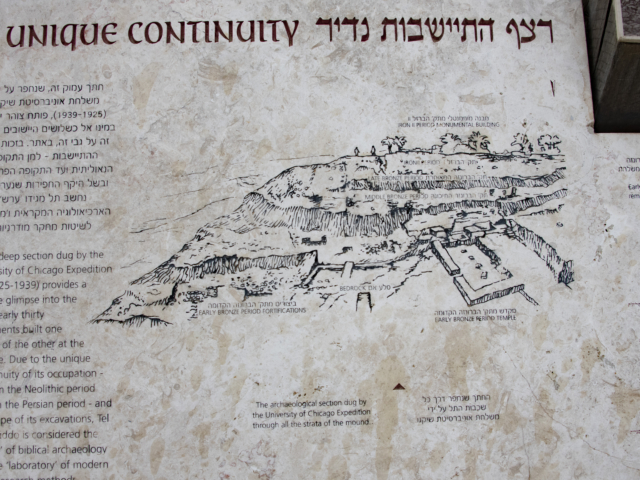 UNIQUE CONTINUITY רצף התיישבות נדיר
חתך עמוק זה, שנחפר על
משלחת אוניברסיטת שיקגו
(1939-1925), פותח צוהר
במינו אל כשלושים היישובים
זה על גבי זה, באתר. בזכות
ההתיישבות - למן התקופה
הנאוליתית ועד התקופה הפרסית
ובשל היקף החפירות שנערכו
נחשב תל מגידו
הארכיאולוגיה המקראית
לשיטות מחקר
deep section dug by the
University of Chicago Expedition
(1925-1939) provides a
glimpse into the
nearly thirty
built one
of the other at the
Due to the unique
of its occupation -
the Neolithic period
the Persian period - and
of its excavations, Tel
is considered the
of biblical archaeology
'laboratory' of modern
מבנה מונומנטלי מתקופת הברזל II
IRON II PERIOD MONUMENTAL BUILDING
MIDDLE BRONZE PERIOD
BEDROCK סלע אם
ביצורים מתקופת הברונזה הקדומה
EARLY BRONZE PERIOD FORTIFICATIONS
מקדש מתקופת הברונזה הקדומה
EARLY BRONZE PERIOD TEMPLE
The archaeological section dug by
the University of Chicago Expedition
through all the strata of the mound
החתך שנחפר דרך כל
שכבות התל על ידי
משלחת אוניברסיטת שיקגו